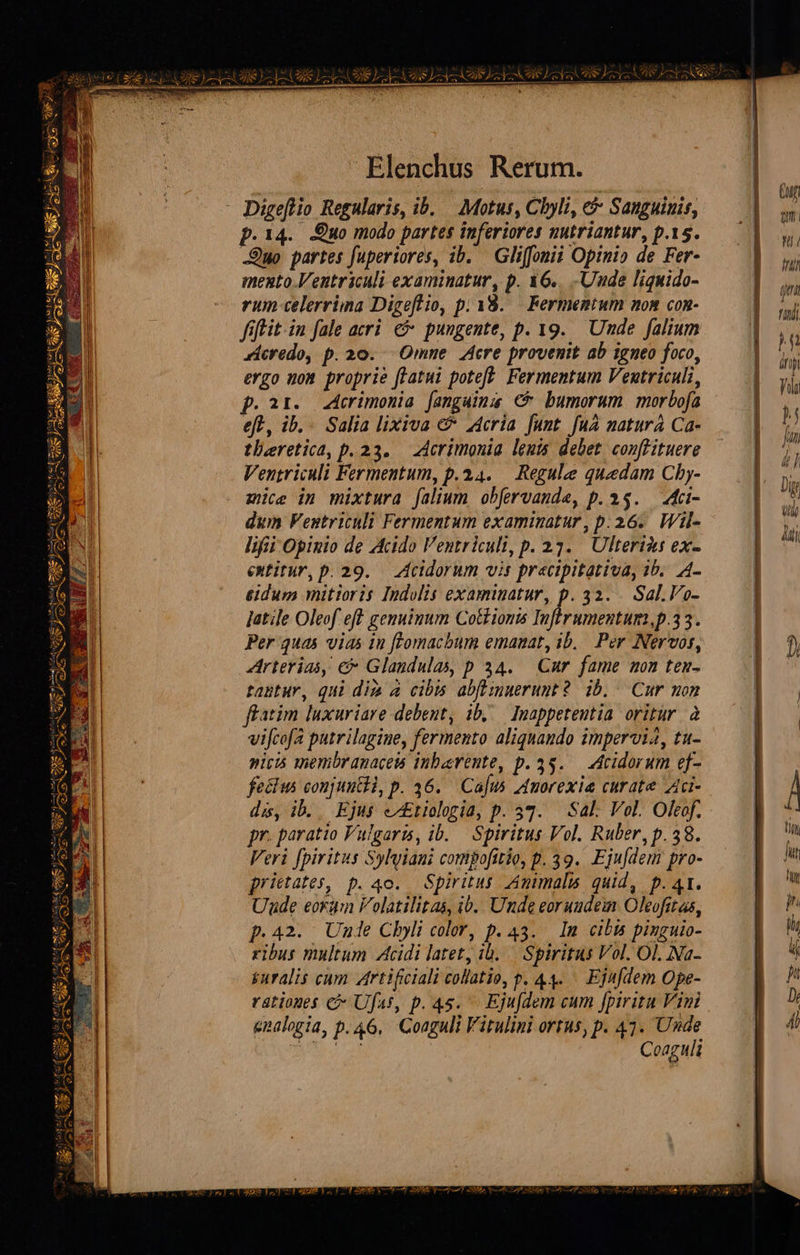 Elenchus Rerum.
Digeſtio Regularis, ib. Motus, Chyli, & Sanguinis,
p. 14. Quo modo partes inferiores nutriantur, p.15.
Quo partes ſuperiores, ib. Gliſſonii Opinio de Fer-
mento Ventriculi examinatur, p. 16. Unde liquido-
rum celerrima Digeſtio, p. 18. Fermentum non con-
ſiſtit in ſale acri & pungente, p. 19. Unde ſalium
Acredo, p. 20. Omne Acre provenit ab igneo foco,
ergo non proprie ſtatui poteſt Fermentum Ventriculi,
p. 21. Acrimonia ſanguinis & humorum morboſa
eſt, ib. Salia lixiva & Acria ſunt ſuâ naturâ Ca-
thæretica, p. 23. Acrimonia lenis debet conſtituere
Ventriculi Fermentum, p.24. Regulæ quædam Chy-
micæ in mixtura ſalium obſervandæ, p. 25. Aci-
dum Ventriculi Fermentum examinatur, p. 26. Wil-
liſii Opinio de Acido Ventriculi, p. 27. Ulterius ex-
cutitur, p. 29. Acidorum vis præcipitativa, ib. A-
cidum mitioris Indolis examinatur, p. 32. Sal.Vo-
latile Oleoſ eſt genuinum Coctionis Inſtrumentum, p.33.
Per quas vias in ſtomachum emanat, ib. Per Nervos,
Arterias, & Glandulas, p 34. Cur fame non ten-
tantur, qui diu à cibis abſtinuerunt? ib. Cur non
ſtatim luxuriare debent, ib. Inappetentia oritur à
viſcoſâ putrilagine, fermento aliquando imperviâ, tu-
nicis membranaceis inhærente, p. 35. Acidorum ef-
fectus conjuncti, p. 36. Caſus Anorexiæ curatæ Aci-
dis, ib. Ejus Ætiologia, p. 37. Sal. Vol. Oleoſ.
pr. paratio Vulgaris, ib. Spiritus Vol. Ruber, p. 38.
Veri ſpiritus Sylviani compoſitio, p. 39. Ejuſdem pro-
prietates, p. 40. Spiritus Animalis quid, p. 41.
Unde eorum Volatilitas, ib. Unde eorundem Oleoſitas,
p. 42. Unde Chyli color, p. 43. In cibis pinguio-
ribus multum Acidi latet, ib. Spiritus Vol. Ol. Na-
turalis cum Artificiali collatio, p. 44. Ejuſdem Ope-
rationes & Uſus, p. 45. Ejuſdem cum ſpiritu Vini
analogia, p. 46. Coaguli Vitulini ortus, p. 47. Unde
Coaguli